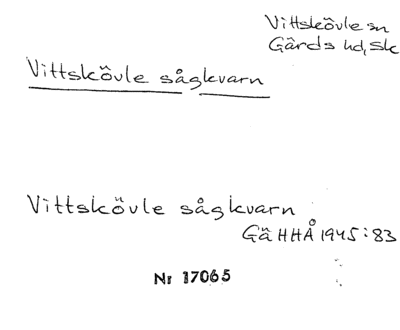 Vittskövle sn
Gärds hd, Sk
Vittskövle sågkvarn
Vittskövle sågkvarn
GäHHÅ 1945:83
Nr 17065